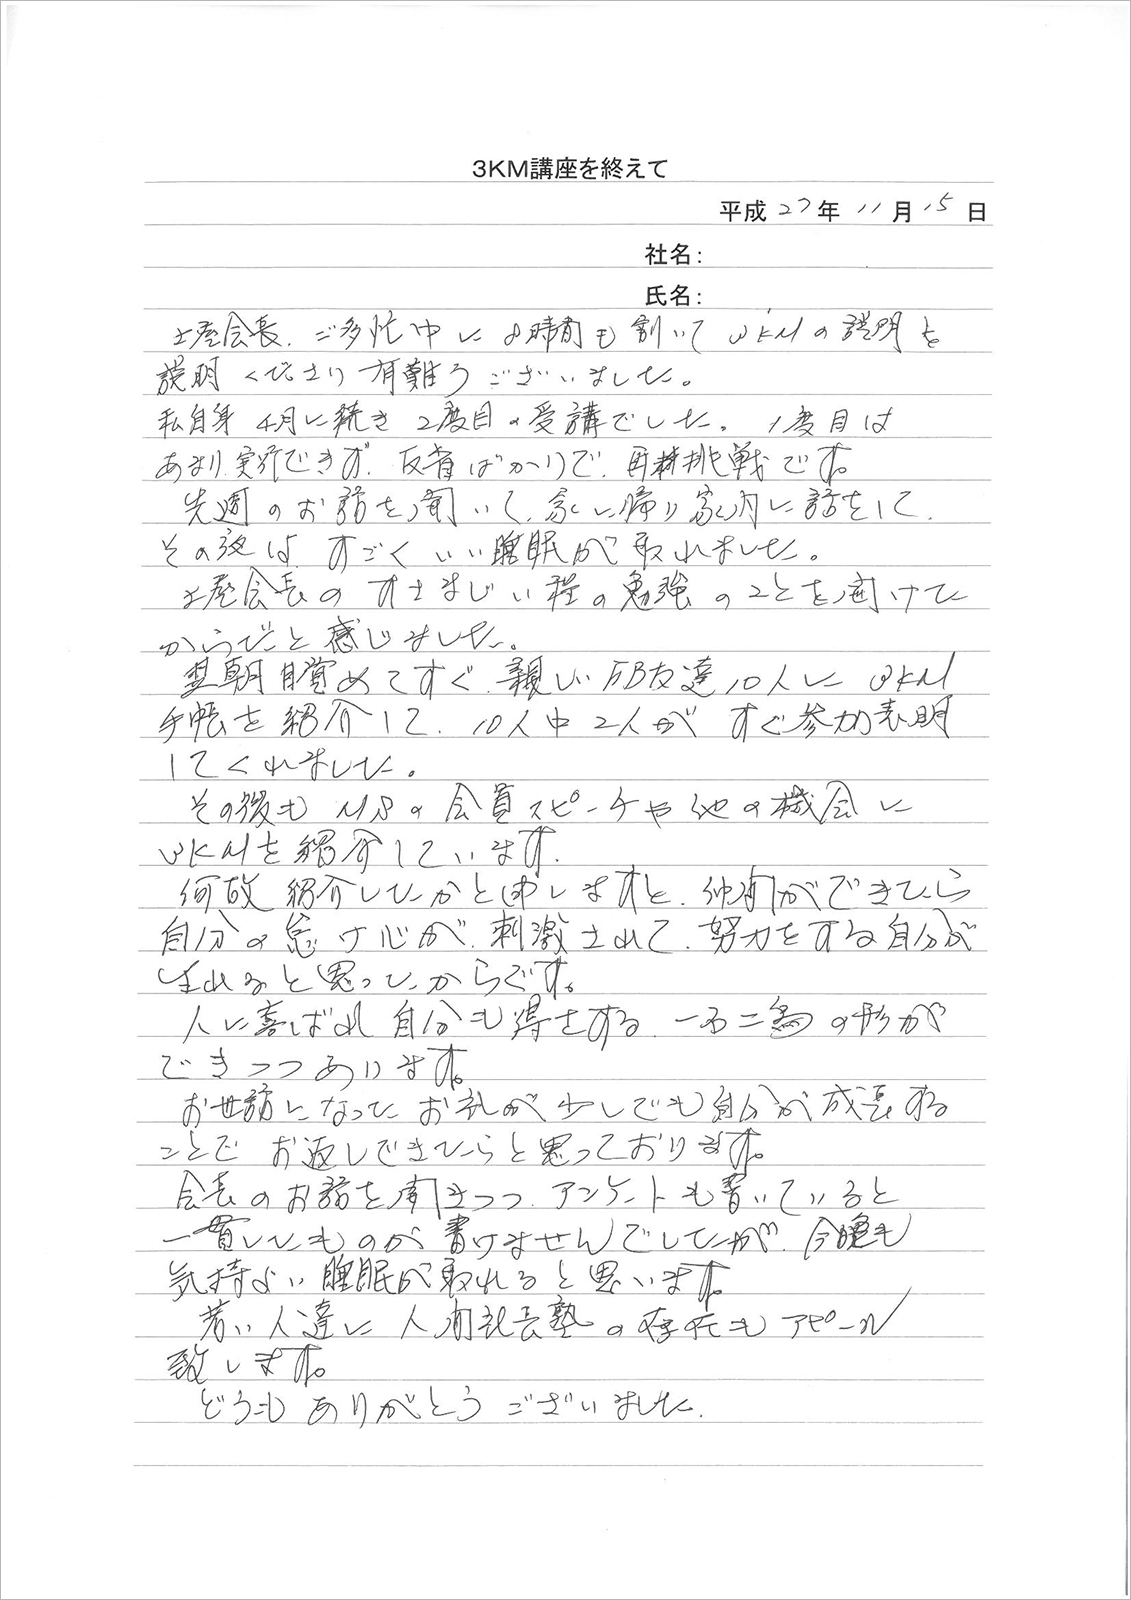 3KM講座を終えて
平成27年11月15日
社名：
氏名：
土屋会長、ご多忙中に8時間も割いて3KMの説明を
説明くださり有難うございました。
私自身4月に続き2度目の受講でした。1度目は
あまり実行できず、反省ばかりで、再耕挑戦です。
先週のお話を聞いて、家に帰り家内に話をして、
その夜はすごくいい睡眠が取れました。
土屋会長のすさまじい程の勉強のことを聞けた
からだと感じました。
翌朝目覚めてすぐ、親しいFB友達10人に3KM
手帳を紹介して、10人中2人がすぐ参加表明
してくれました。
その後もMSの会員スピーチや他の機会に
3KMを紹介しています。
何故紹介したかと申しますと、仲間ができたら
自分の怠け心が、刺激されて、努力をする自分が
生れると思ったからです。
人に喜ばれ自分も得をする、一石二鳥の形が
できつつあります。
お世話になったお礼が少しでも自分が成長する
ことでお返しできたらと思っております。
会長のお話を聞きつつ、アンケートも書いていると
一貫したものが書けませんでしたが、今晩も
気持よい睡眠が取れると思います。
若い人達に人間社長塾の存在もアピール
致します。
どうもありがとうございました。